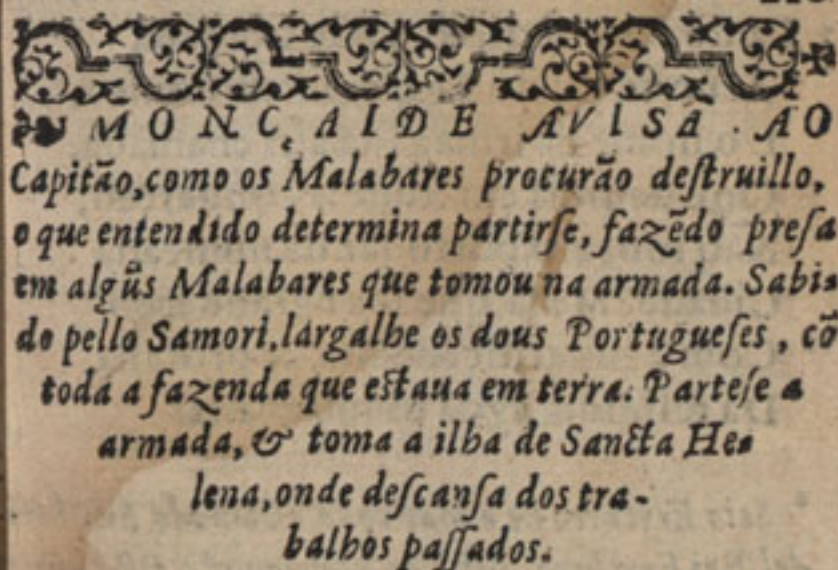 MONÇAIDE AVISA AO
Capitão, como os Malabares procurão deſtruillo,
o que entendido determina partirſe, fazẽdo preſa
em algũs Malabares que tomou na armada. Sabi-
do pello Samori, largalhe os dous Portugueſes, cõ
toda a fazenda que eſtaua em terra. Parteſe a
armada, & toma a ilha de Sancta He-
lena, onde deſcanſa dos tra-
balhos paſſados.